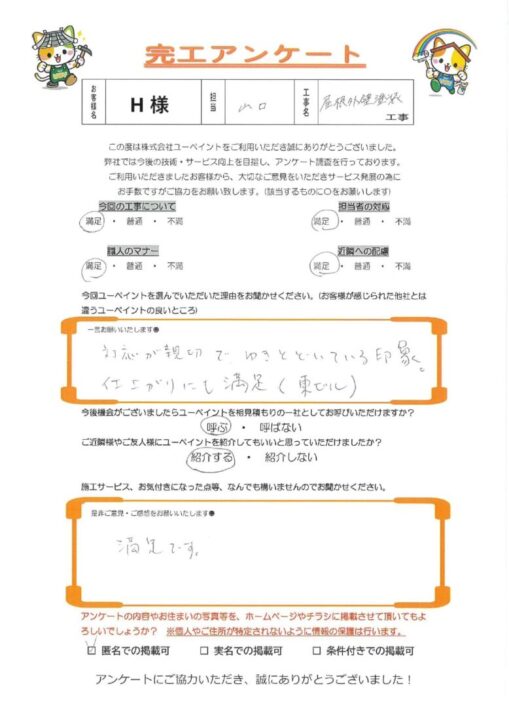 完工アンケート
お客様名 H 様 担当 山口 工事名 屋根外壁塗装 工事
この度は株式会社ユーペイントをご利用いただき誠にありがとうございました。
弊社では今後の技術・サービス向上を目指し、アンケート調査を行っております。
ご利用いただきましたお客様から、大切なご意見をいただきサービス発展の為に
お手数ですがご協力をお願い致します。(該当するものに○をお願いします)
今回の工事について 担当者の対応
満足 ・ 普通 ・ 不満 満足 ・ 普通 ・ 不満
職人のマナー 近隣への配慮
満足 ・ 普通 ・ 不満 満足 ・ 普通 ・ 不満
今回ユーペイントを選んでいただいた理由をお聞かせください。(お客様が感じられた他社とは
違うユーペイントの良いところ)
一言お願いいたします●
対応が親切でゆきとどいている印象。
仕上がりにも満足(東ビル)
今後機会がございましたらユーペイントを相見積もりの一社としてお呼びいただけますか?
呼ぶ ・ 呼ばない
ご近隣様やご友人様にユーペイントを紹介してもいいと思っていただけましたか?
紹介する ・ 紹介しない
施工サービス、お気付きになった点等、なんでも構いませんのでお聞かせください。
是非ご意見・ご感想をお願いいたします●
満足です。
アンケートの内容やお住まいの写真等を、ホームページやチラシに掲載させて頂いてもよ
ろしいでしょうか? ※個人やご住所が特定されないように情報の保護は行います。
☑ 匿名での掲載可 □ 実名での掲載可 □ 条件付きでの掲載可
アンケートにご協力いただき、誠にありがとうございました!